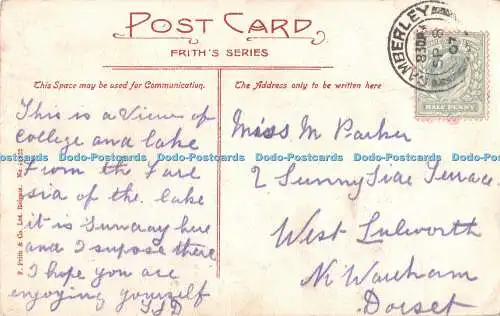 POST CARD
FRITH'S SERIES
This Space may be used for Communication.
The Address only to be written here
CAMBERLEY
HALF PENNY
This is a View of
College and lake
From the Fare
sia of the lake
it is Sunday here
and I supose there
I hope you are
enjoying yourself
Miss M Parker
2 Sunny Side Terrace
West Lulworth
Nr Wareham
Dorset
F. Frith & Co. Ltd. Reigate.
Dodo-Postcards Dodo-Postcards Dodo-Postcards Dodo-Postcards Dodo-Postcards